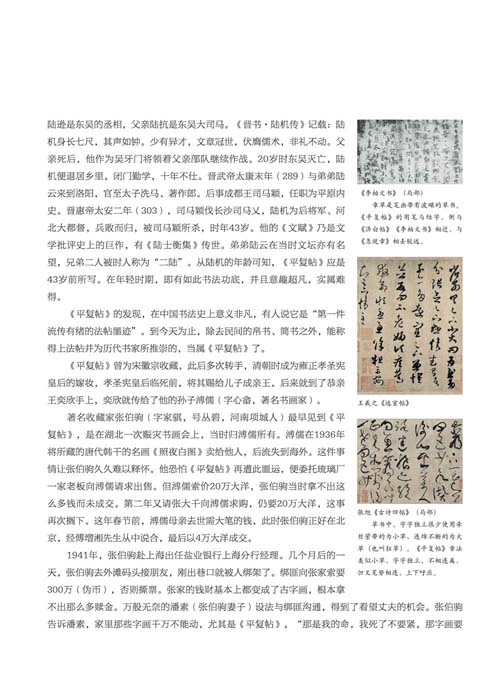 陆逊是东吴的丞相，父亲陆抗是东吴大司马。《晋书·陆机传》记载：陆
机身长七尺，其声如钟。少有异才，文章冠世，伏膺儒术，非礼不动。父
亲死后，他作为吴牙门将领着父亲部队继续作战。20岁时东吴灭亡，陆
机便退居乡里，闭门勤学，十年不仕。晋武帝太康末年（289）与弟弟陆
云来到洛阳，官至太子洗马、著作郎。后事成都王司马颖，任职为平原内
史。晋惠帝太安二年（303），司马颖伐长沙司马乂，陆机为后将军、河
北大都督，兵败而归，被司马颖所杀，时年43岁。他的《文赋》乃是文
学批评史上的巨作，有《陆士衡集》传世。弟弟陆云在当时文坛亦有名
望，兄弟二人被时人称为“二陆”。从陆机的年龄可知，《平复帖》应是
43岁前所写。在年轻时期，即有如此书法功底，并且意趣超凡，实属难
得。
《平复帖》的发现，在中国书法史上意义非凡，有人说它是“第一件
流传有绪的法帖墨迹”。到今天为止，除去民间的帛书、简书之外，能称
得上法帖并为历代书家所推崇的，当属《平复帖》了。
《平复帖》曾为宋徽宗收藏，此后多次转手，清朝时成为雍正孝圣宪
皇后的嫁妆，孝圣宪皇后临死前，将其赐给儿子成亲王，后来就到了恭亲
王奕欣手上，奕欣就传给了他的孙子溥儒（字心畲，著名书画家）。
著名收藏家张伯驹（字家骐，号丛碧，河南项城人）最早见到《平复
帖》，是在湖北一次赈灾书画会上，当时归溥儒所有。溥儒在1936年
将所藏的唐代韩干的名画《照夜白图》卖给他人，后流失到海外。这件事
情让张伯驹久久难以释怀。他恐怕《平复帖》再遭此噩运，便委托琉璃厂
一家老板向溥儒请求出售。但溥儒索价20万大洋，张伯驹当时拿不出这
么多钱而未成交。第二年又请张大千向溥儒求购，仍要20万大洋，这事
再次搁下。这年春节前，溥儒母亲去世需大笔的钱，此时张伯驹正好在北
京，经傅增湘先生从中说合，最后以4万大洋成交。
1941年，张伯驹赴上海出任盐业银行上海分行经理。几个月后的一
天，张伯驹去外滩码头接朋友，刚出巷口就被人绑架了。绑匪向张家索要
300万（伪币），否则撕票。张家的钱财基本上都变成了古字画，根本拿
不出那么多赎金。万般无奈的潘素（张伯驹妻子）设法与绑匪沟通，得到了看望丈夫的机会。张伯驹
告诉潘素，家里那些字画千万不能动，尤其是《平复帖》，“那是我的命，我死了不要紧，那字画要
《李柏文书》（局部）
章草是笔画带有波磔的草书。
《平复帖》的用笔与结字，倒与
《济白帖》《李柏文书》相近，与
《急就章》相去较远。
王羲之《远宦帖》
张旭《古诗四帖》（局部）
草书中，字字独立很少使用牵
丝萦带的为小草，连绵不断的为大
草（也叫狂草）。《平复帖》章法
类似小草，字字独立，不相连属，
但又笔势相连，上下呼应。